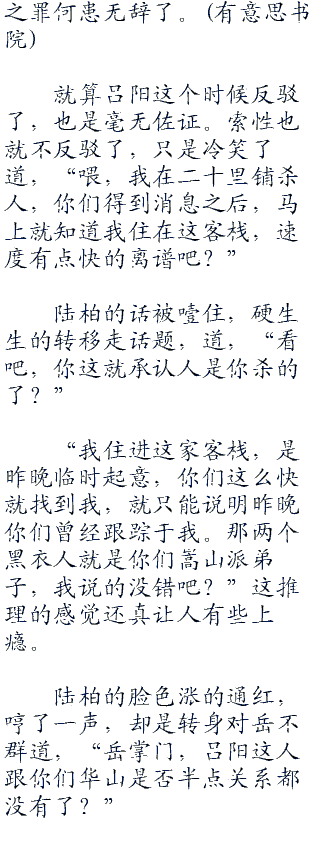 之罪何患无辞了。(有意思书
院)
就算吕阳这个时候反驳
了，也是毫无佐证。索性也
就不反驳了，只是冷笑了
道，“喂，我在二十里铺杀
人，你们得到消息之后，马
上就知道我住在这客栈，速
度有点快的离谱吧？”
陆柏的话被噎住，硬生
生的转移走话题，道，“看
吧，你这就承认人是你杀的
了？”
“我住进这家客栈，是
昨晚临时起意，你们这么快
就找到我，就只能说明昨晚
你们曾经跟踪于我。那两个
黑衣人就是你们嵩山派弟
子，我说的没错吧？”这推
理的感觉还真让人有些上
瘾。
陆柏的脸色涨的通红，
哼了一声，却是转身对岳不
群道，“岳掌门，吕阳这人
跟你们华山是否半点关系都
没有了？”